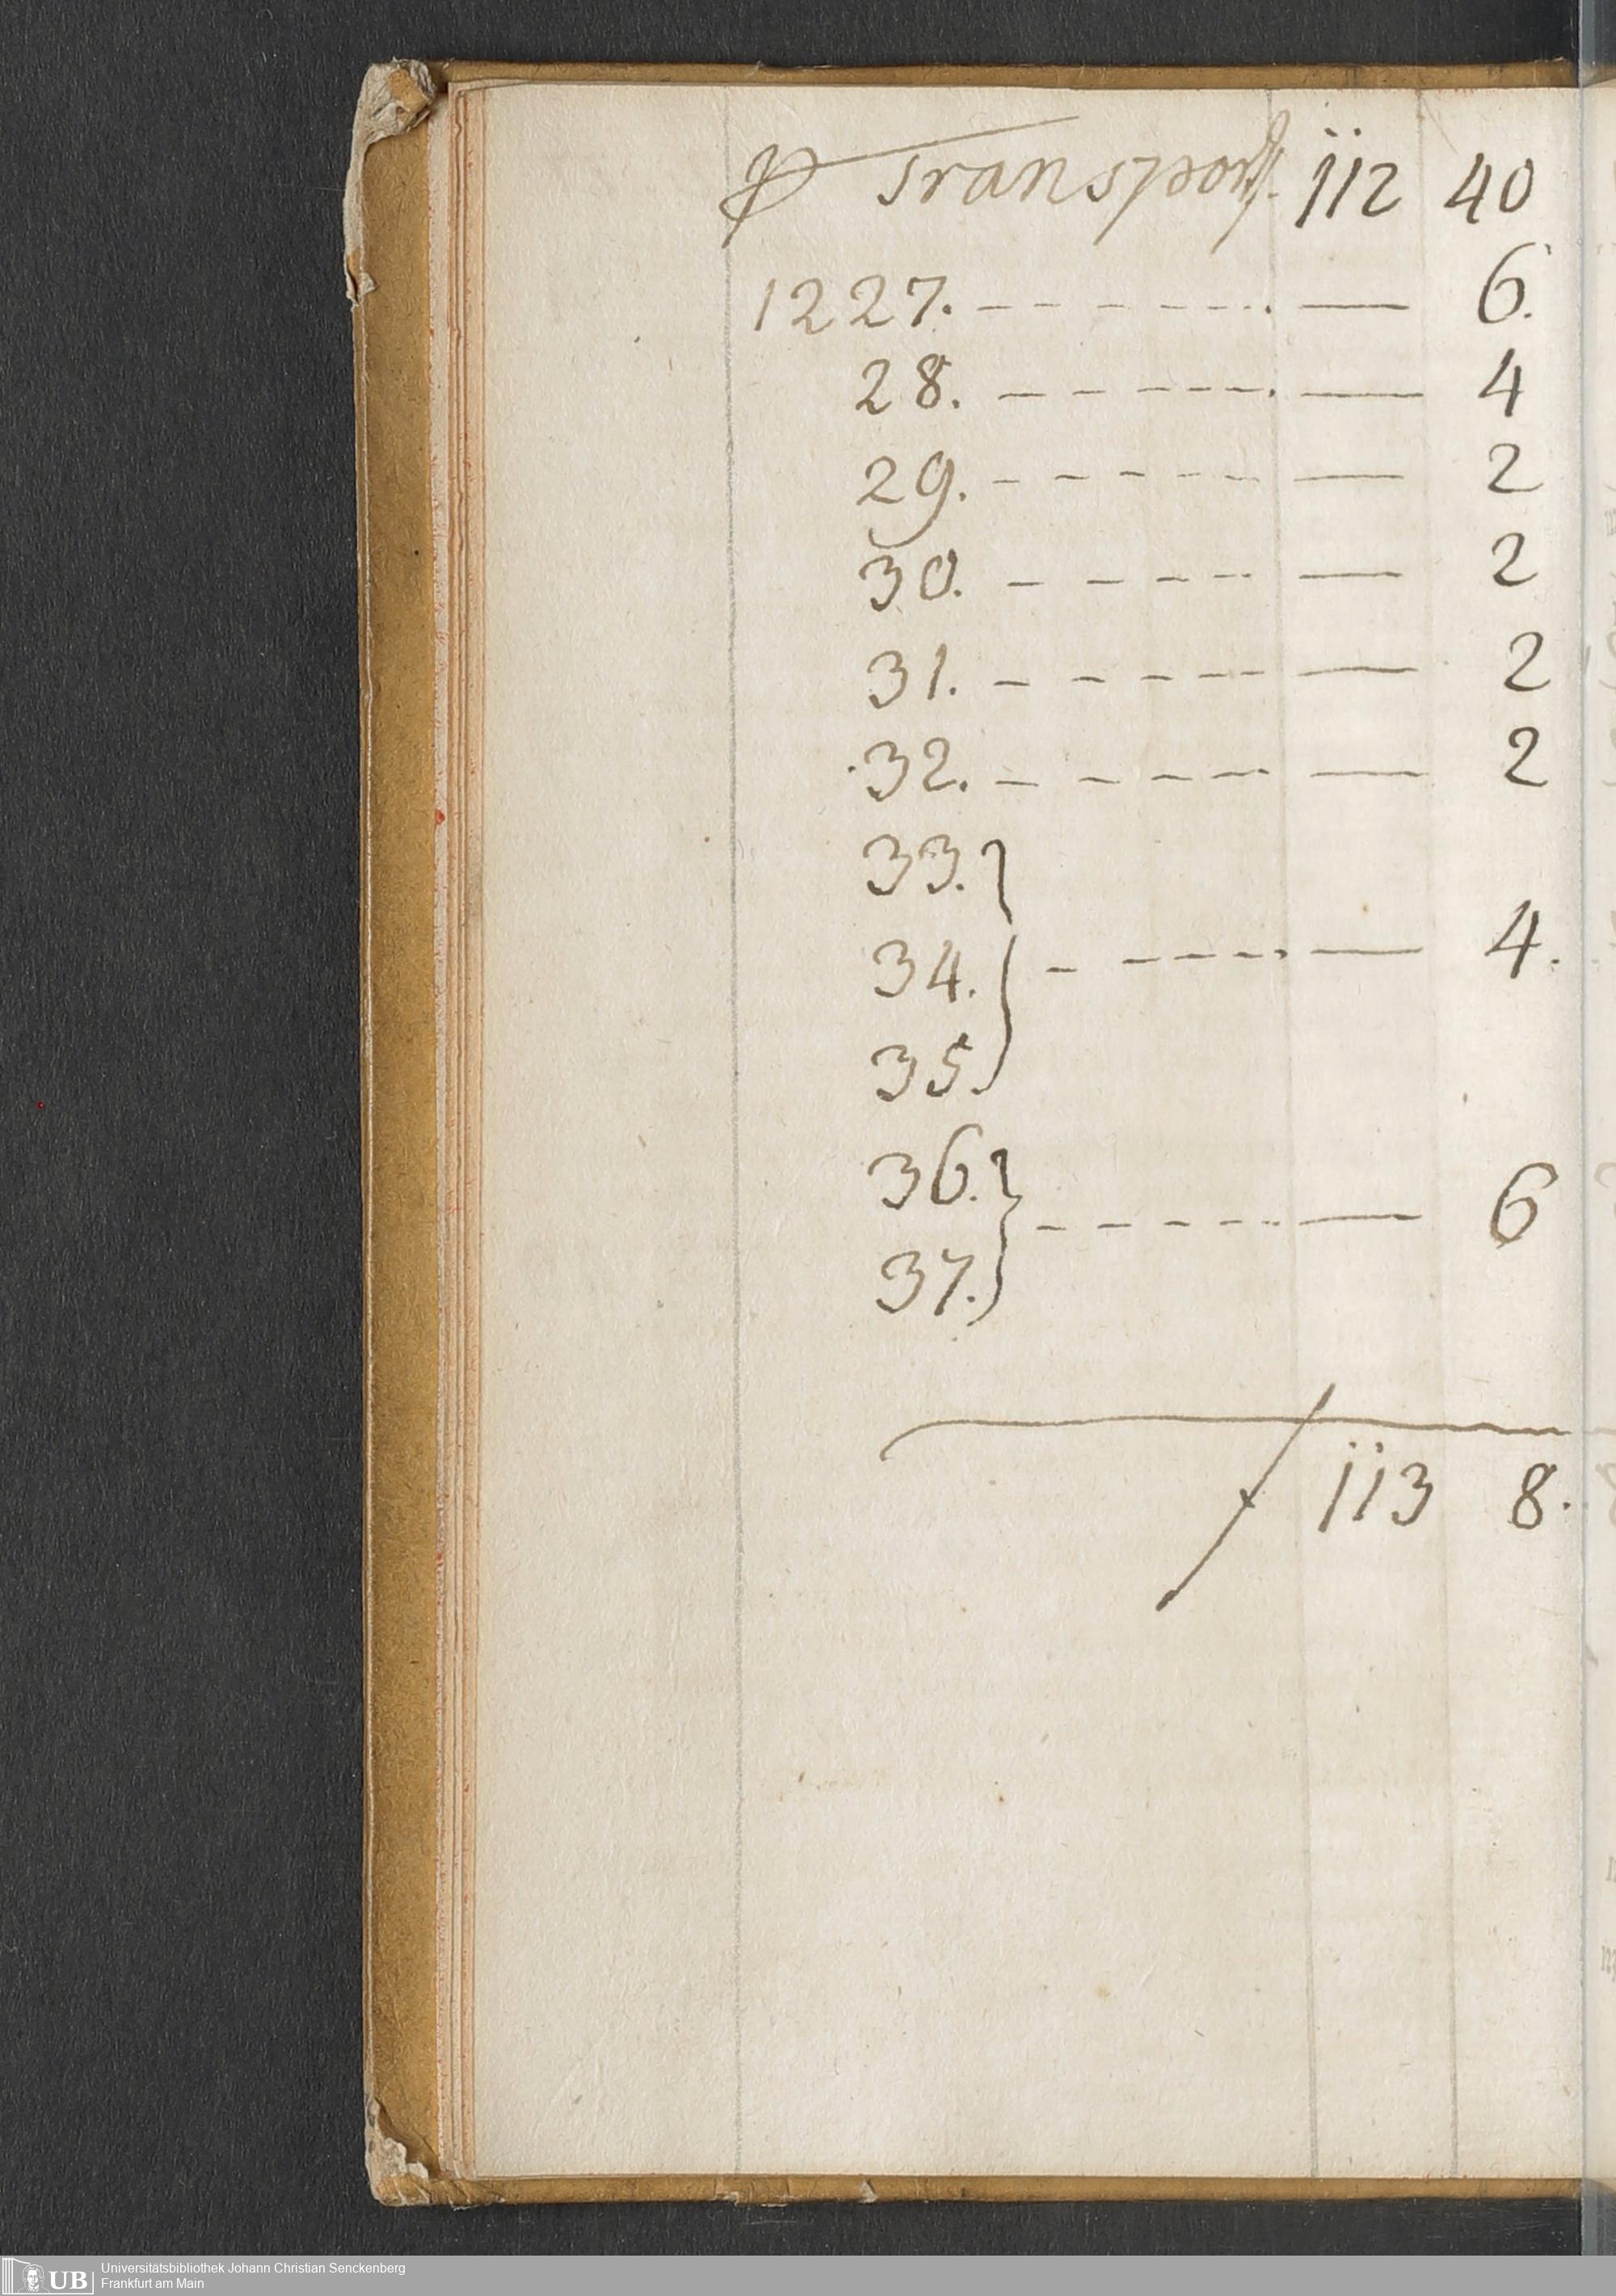 P Transport. 112 40
1227. - - - - - - . — 6.
28. - - - - - - . — 4
29. - - - - - — 2
30. - - - - - — 2
31. - - - - - - — 2
32. - - - - - — 2
33. }
34. } - - - - - - — 4.
35. }
36. }
37. } - - - - - - — 6
113 8.
UB
Universitätsbibliothek Johann Christian Senckenberg
Frankfurt am Main